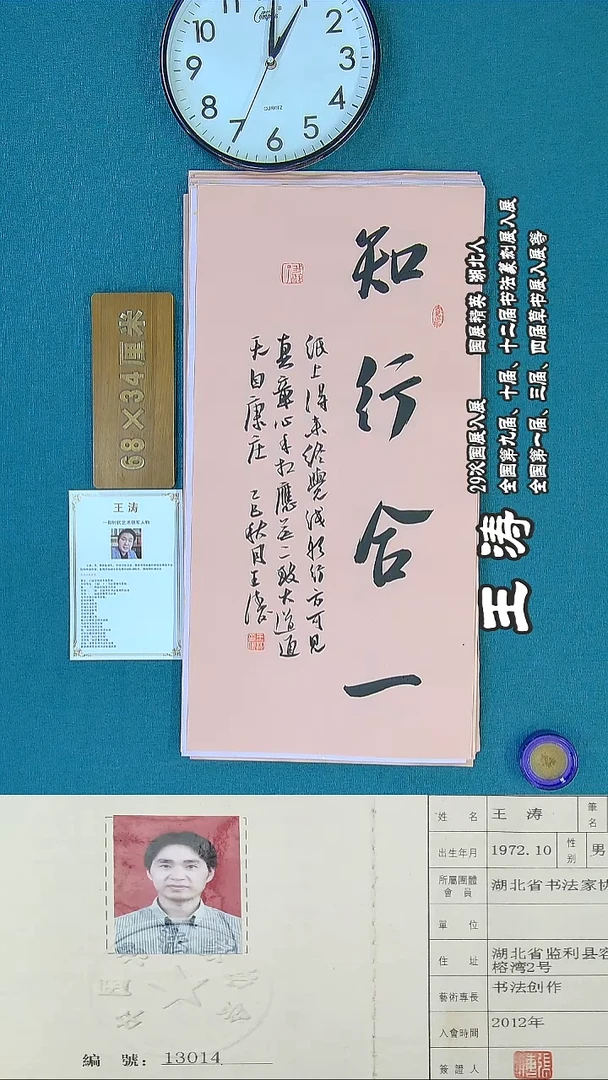 10
2
9
3
8
4
7
6
5
68×34厘米
王 涛
知行合一
纸上得来终覺浅躬行方可见
真章心手相應无二致大道通
天自康庄 乙巳秋月王涛
29次国展入展 国展精英 湖北人
全国第九届、十届、十二届书法篆刻展入展
全国第一届、三届、四届草书展入展等
王涛
編 號：13014
姓 名 王 涛 筆名
出生年月 1972.10 性别 男
所屬團體會員 湖北省书法家协
單 位
住 址 湖北省监利县容
榕湾2号
藝術專長 书法创作
入會時間 2012年
簽證人